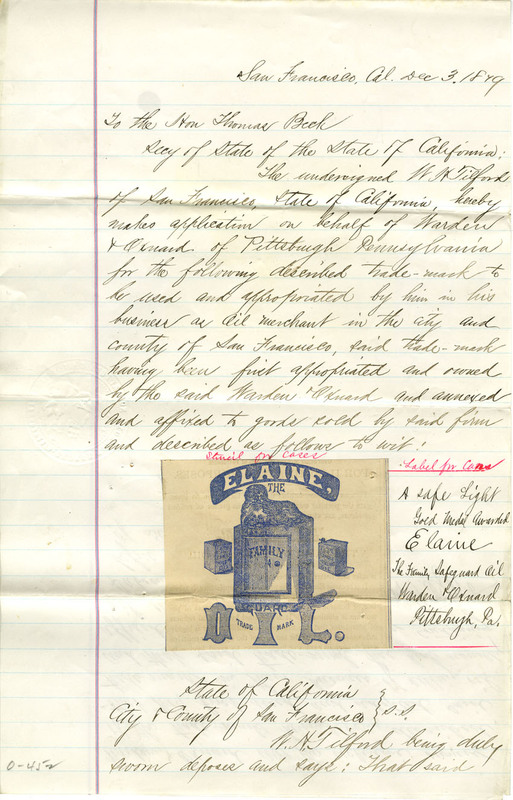 San Francisco, Cal. Dec 3, 1879
To the Hon Thomas Beck
Secy of State of the State of California:
The undersigned W. H. Tilford
of San Francisco, State of California, hereby
makes application on behalf of Warden
& Oxnard of Pittsburgh Pennsylvania
for the following described trade-mark to
be used and appropriated by him in his
business as Oil merchant in the city and
county of San Francisco, said trade-mark
having been first appropriated and owned
by the said Warden & Oxnard and annexed
and affixed to goods sold by said firm
and described as follows to wit:
Stencil for Cases
ELAINE,
THE
FAMILY
GUARD
OIL.
TRADE MARK
Label for Cans
A Safe Light
Gold Medal Awarded
Elaine
The Family Safeguard Oil
Warden & Oxnard
Pittsburgh, Pa.
State of California
City & County of San Francisco } S.S.
W. H. Tilford being duly
sworn deposes and says: That said
0-452